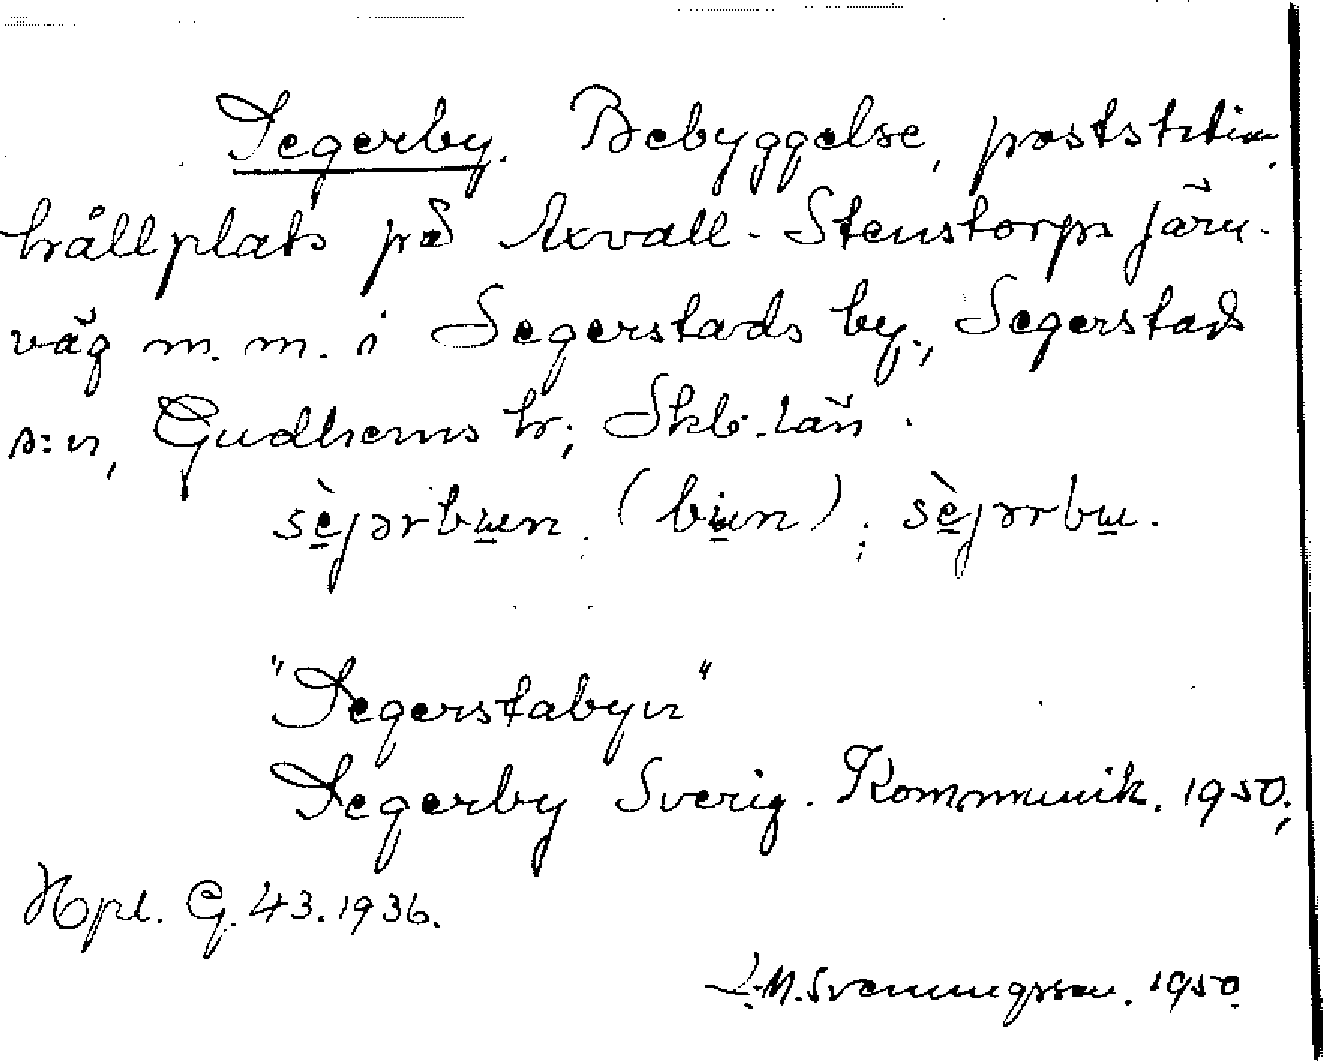 Segerby. Bebyggelse, poststation,
hållplats på Axvall-Stenstorps järn-
väg m.m. i Segerstads by, Segerstad
s:n, Gudhems hr; Skb. län.
sèjərbɯn (bɯn); sèjərbɯ.
"Segerstabyn"
Segerby Sverig. Kommunik. 1950;
Hpl. G. 43. 1936.
L.M. Svenungsson. 1950